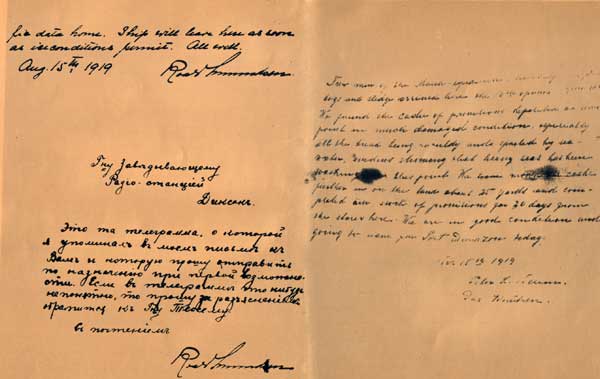 data home. Ship will leave here as soon
as iceconditions permit. All well.
Aug. 15th 1919
Roald Amundsen.
Гну Завѣдывающему
Радіо-станціей
Диксонъ.
Это та телеграмма, о которой
я упоминалъ въ моемъ письмѣ къ
Вамъ и которую прошу отправить
по назначенію при первой возможно-
сти. Если въ телеграммѣ что нибудь
непонятно, то прошу за разъясненіемъ
обратится къ Гну Тессему
съ почтеніемъ
Roald Amundsen
Four men of the Maud-expedition
dogs and sledge arrived here the
We found the cache of provisions deposited
point in much damaged condition, especially
all the bread being mouldy and spoiled by sea-
water, showing that heavy seas has been
washing this point. We have cache
further in on the land about 25 yards and com-
pleted our stock of provisions for 20 days from
the stores here. We are in good condition and
going to leave for Port Dickson today.
15th 1919
Peter L. Tessem.
Paul Knutsen.